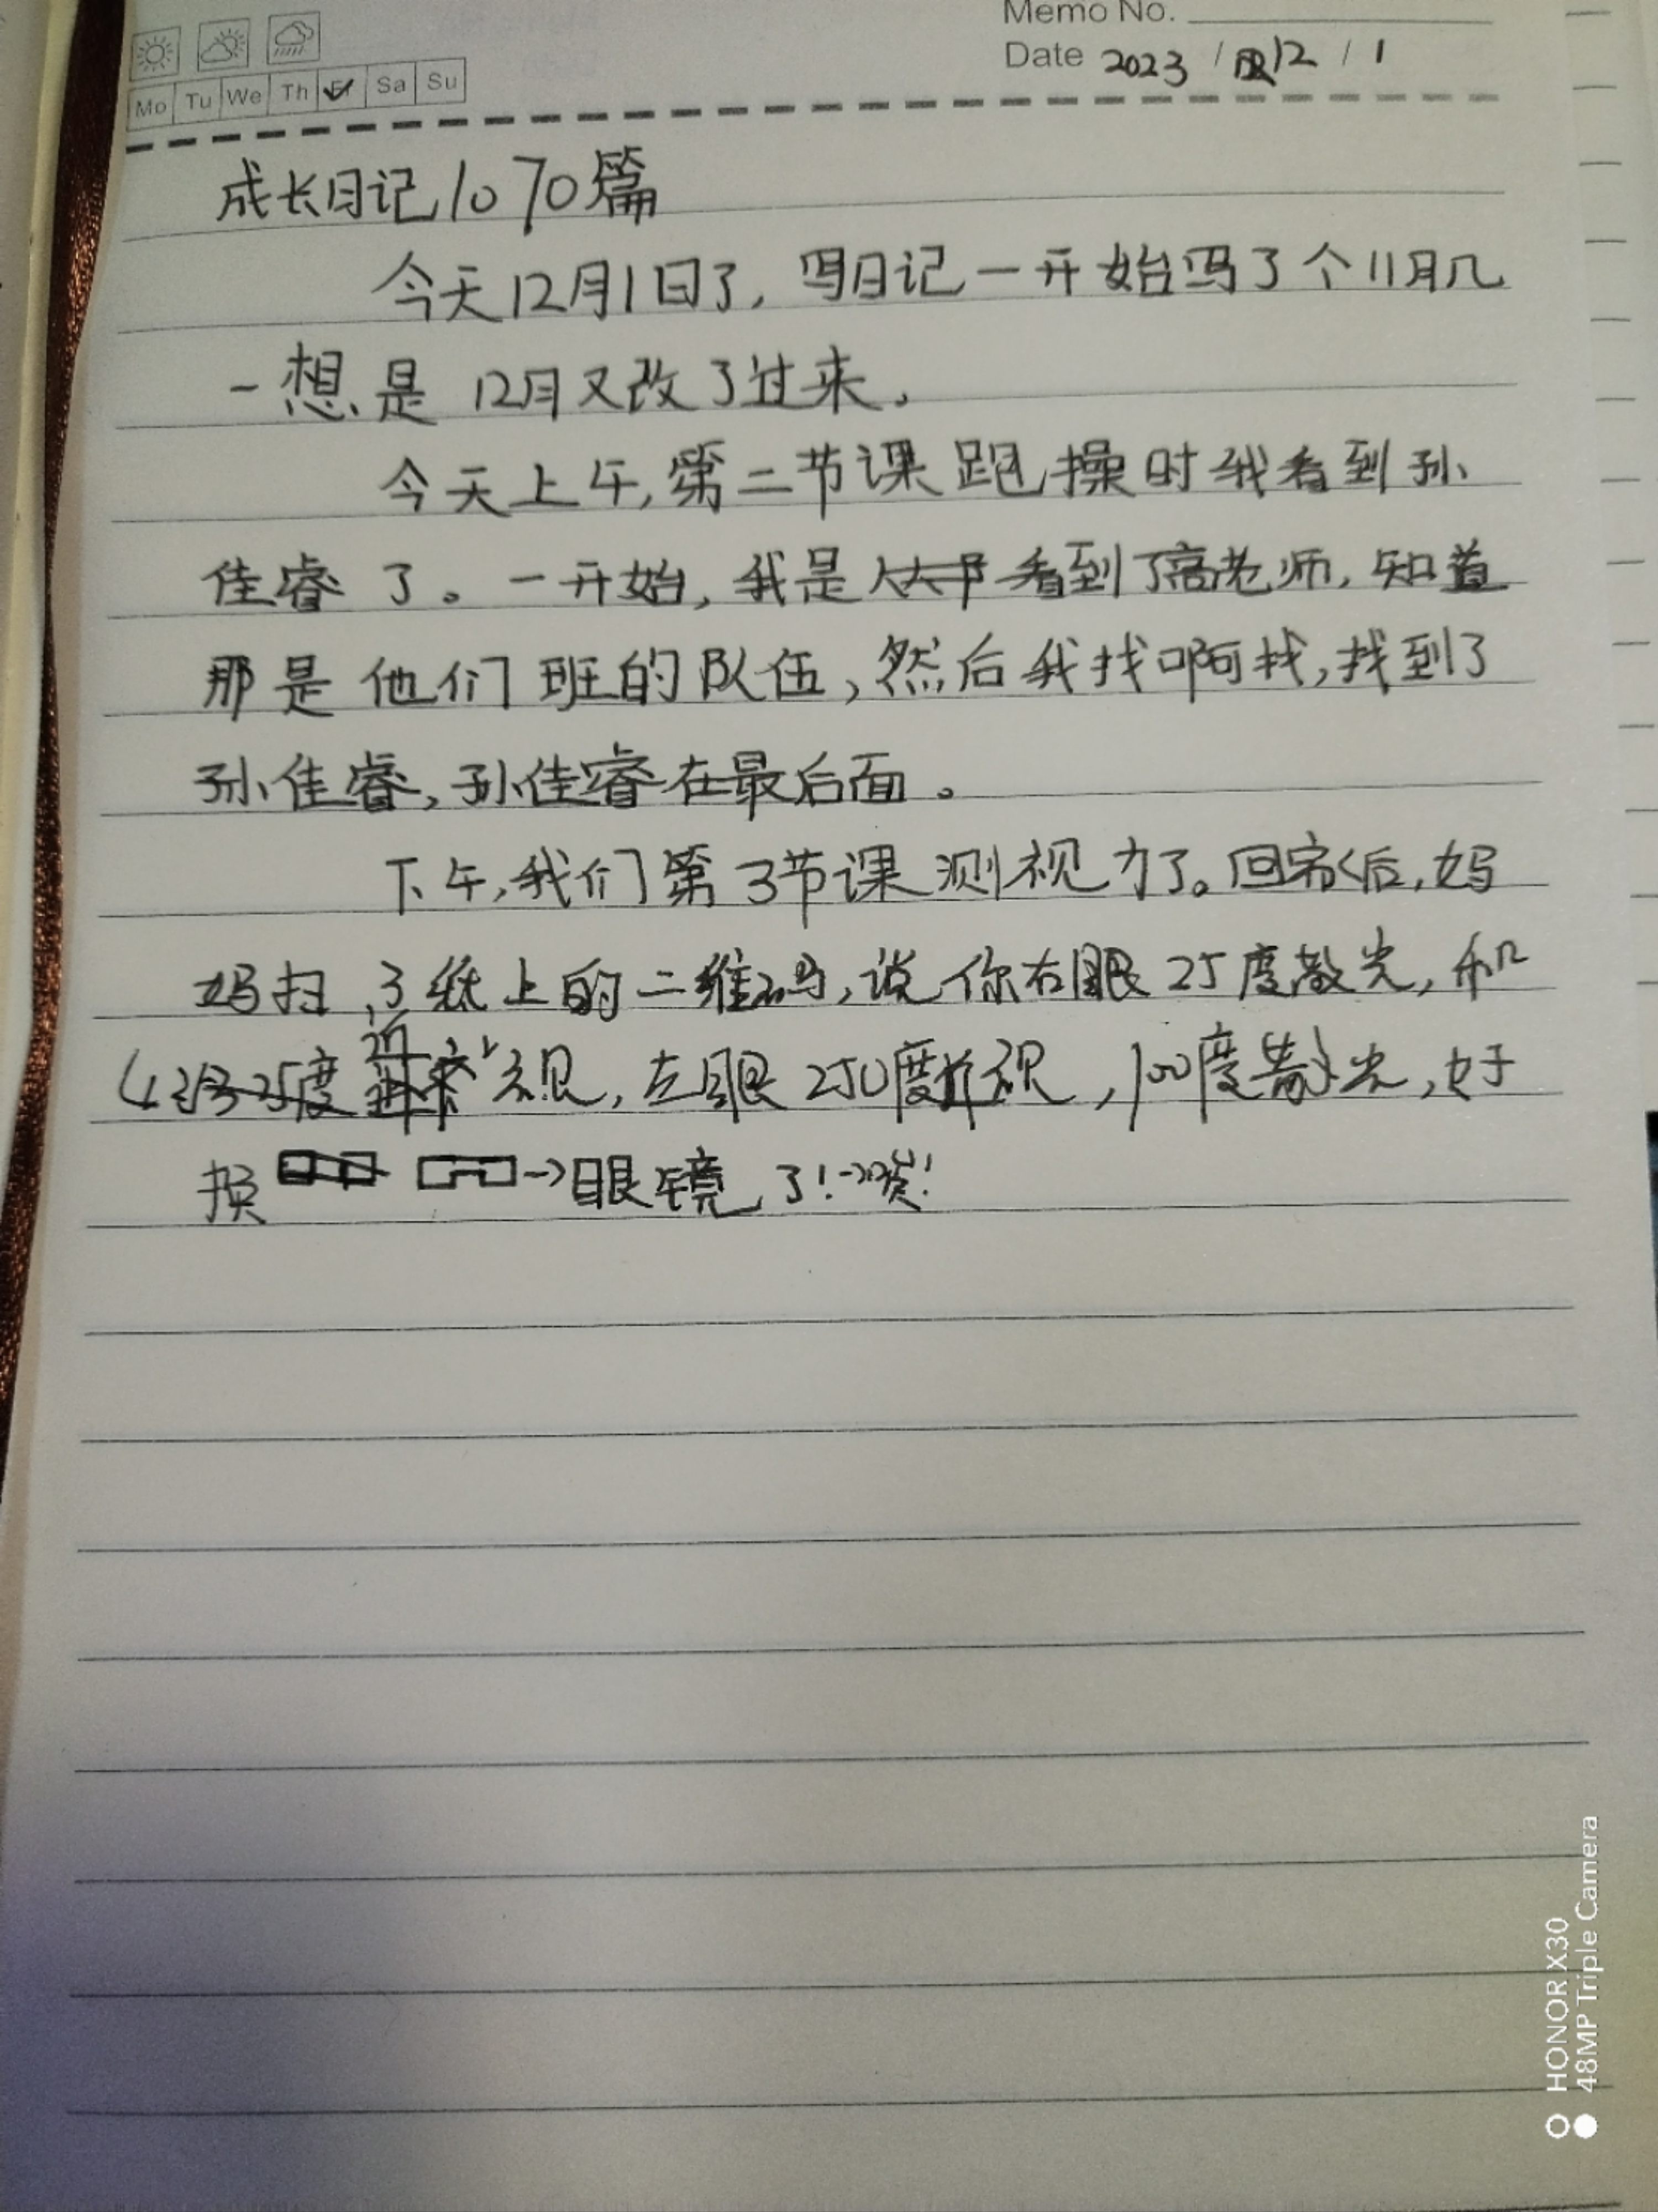 Memo No.
Date 2023 / 12 / 1
Mo Tu We Th Fr Sa Su
成长日记1070篇
今天12月1日了，写日记一开始写了个11月几
一想是12月又改了过来。
今天上午，第二节课跑操时我看到孙
佳睿了。一开始，我是看到了高老师，知道
那是他们班的队伍，然后我找啊找，找到了
孙佳睿，孙佳睿在最后面。
下午，我们第3节课测视力了。回家后，妈
妈扫了纸上的二维码，说你右眼25度散光，和
25度近视，左眼250度近视，100度散光，好
换→眼镜了！→唉！
HONOR X30
48MP Triple Camera